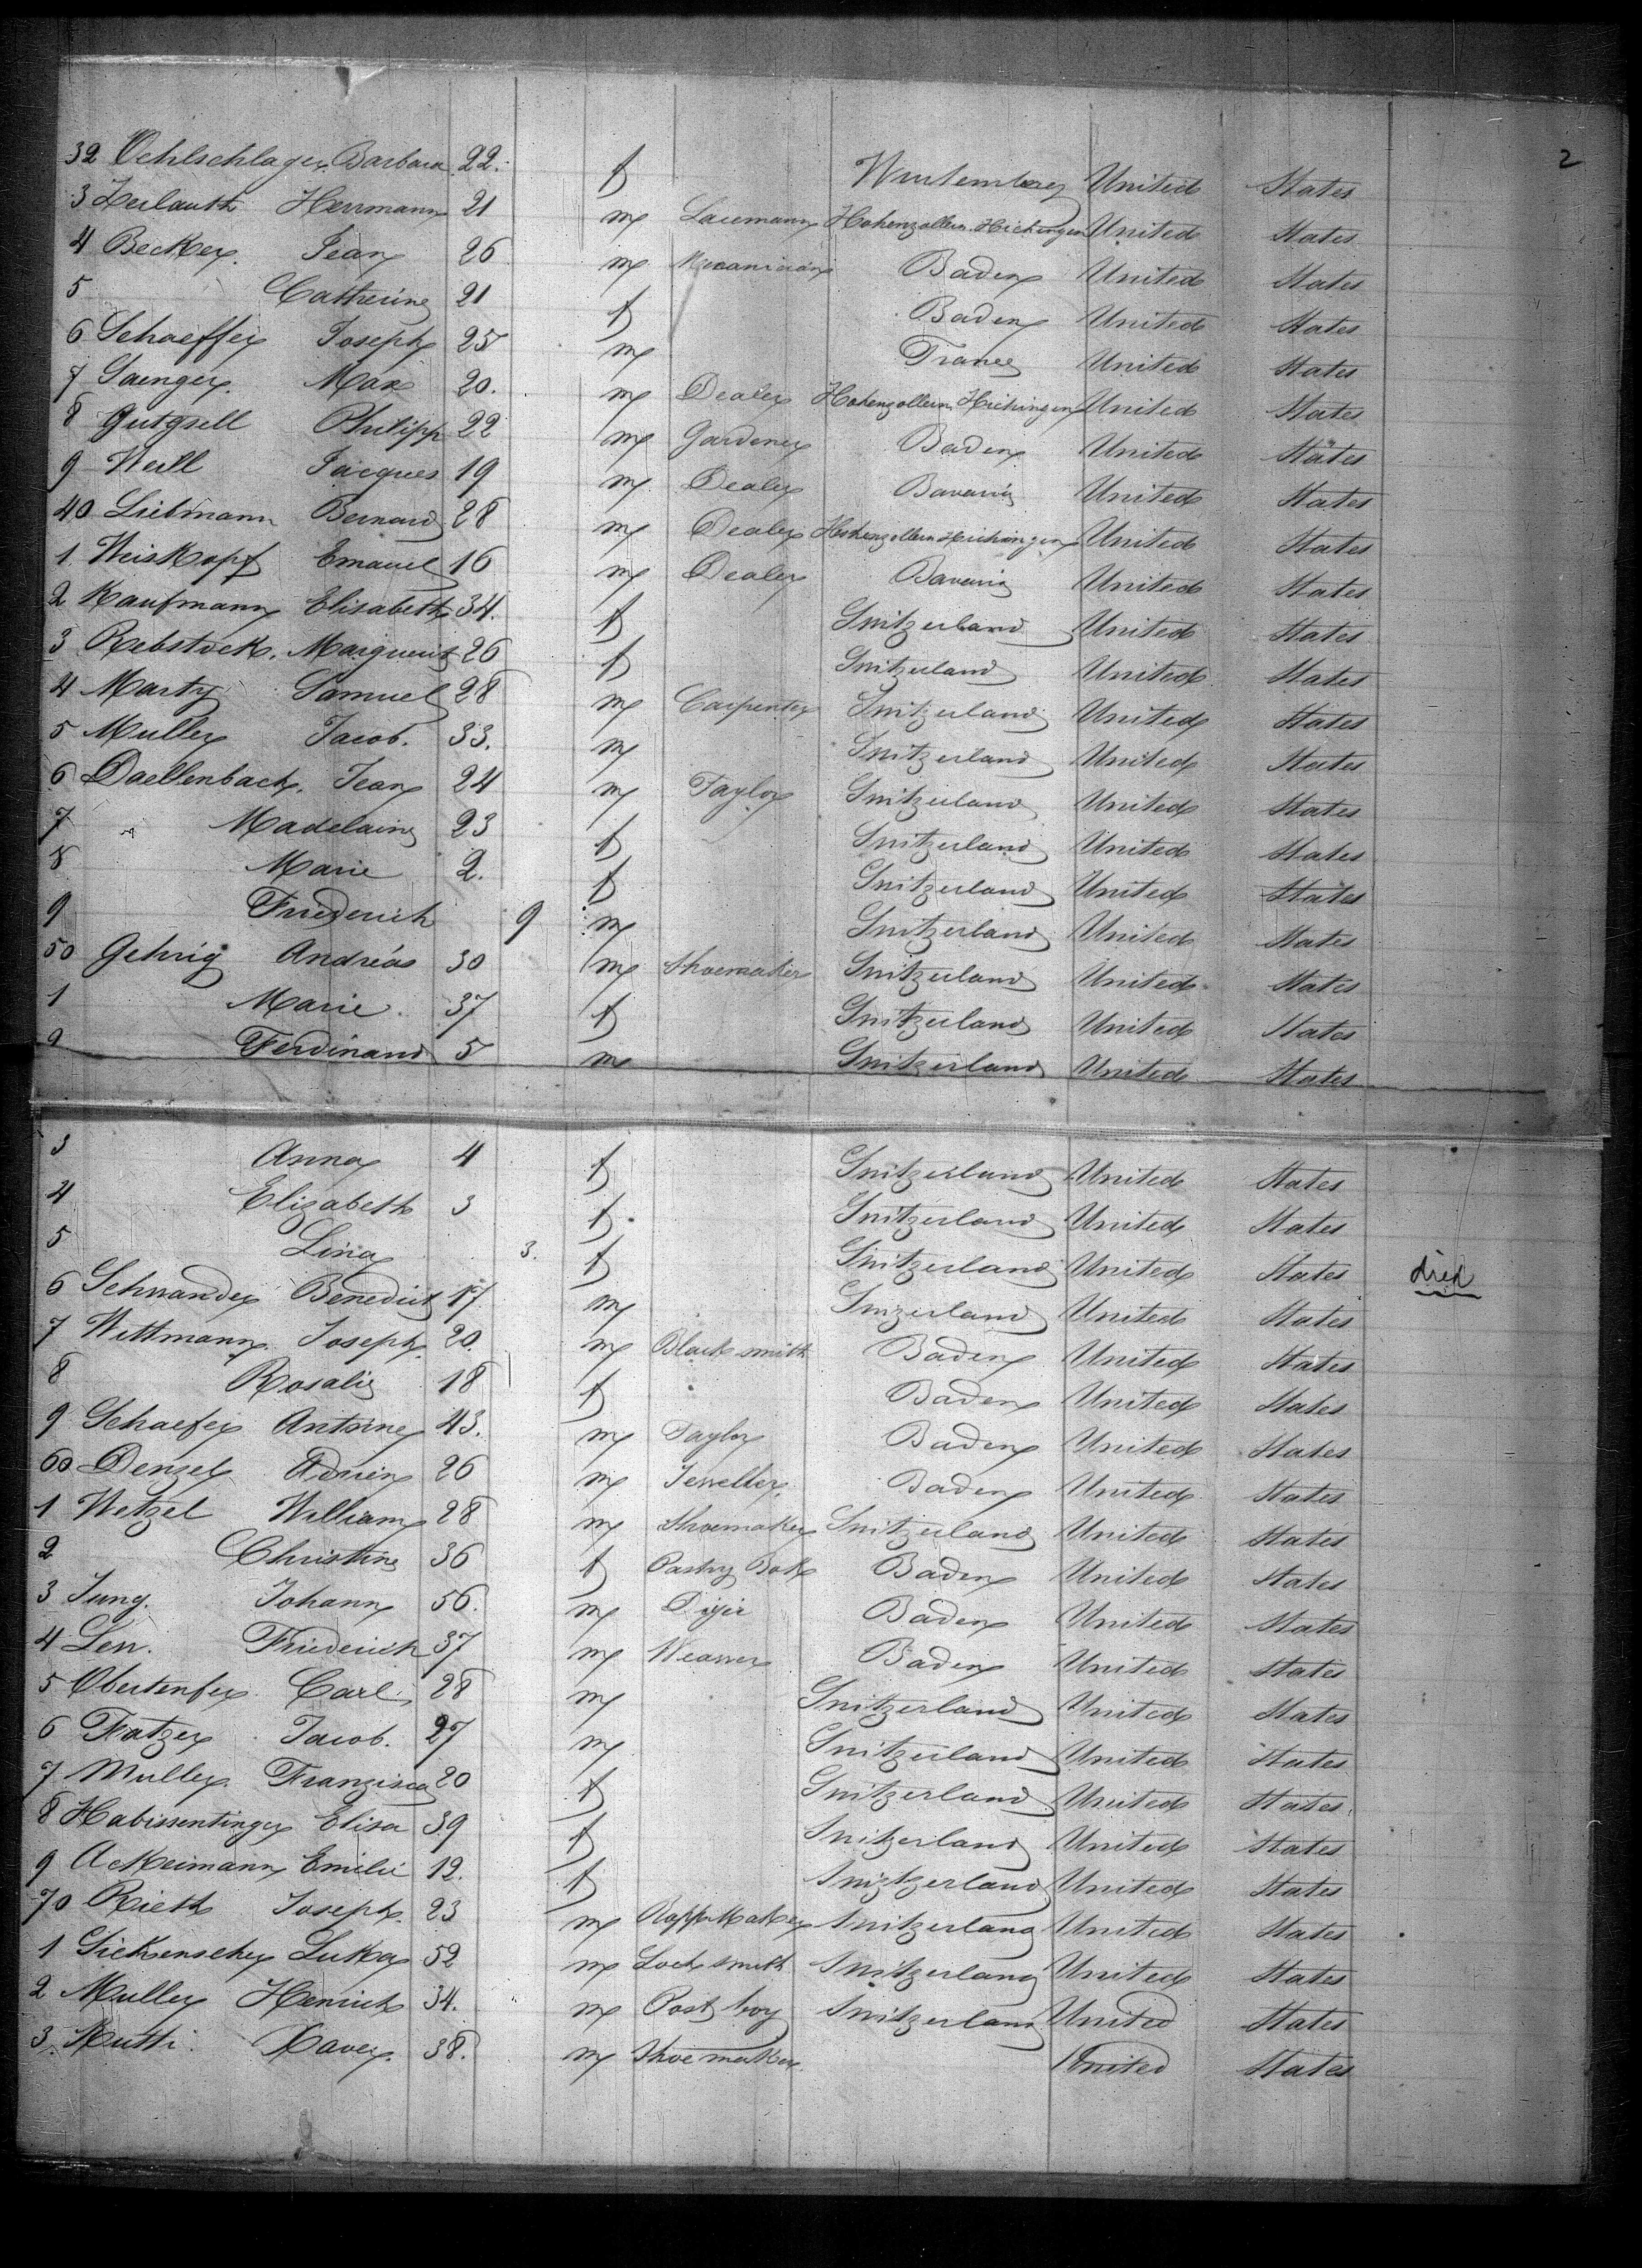 2
32 Oehlschlager Barbara 22. f Wurtemberg United States
3 Zerlauth Herrmann 21 m Hohenzollern Hichingen United States
4 Becker Jean 26 m Mecanician Baden United States
5 Catherine 21 f Baden United States
6 Schaeffer Joseph 25 m France United States
7 Saenger Max 20. m Dealer Hohenzollern Hichingen United States
8 Gutgsell Philipp 22 m Gardener Baden United States
9 Weill Jacques 19 m Dealer Bavaria United States
40 Liebmann Bernard 28 m Dealer Hohenzollern Hichingen United States
1 Weiskopf Emanuel 16 m Dealer Bavaria United States
2 Kaufmann Elisabeth 34. f Switzerland United States
3 Rebstock. Marguerit 26 f Switzerland United States
4 Marty Samuel 28 m Carpenter Switzerland United States
5 Muller Jacob. 33. m Switzerland United States
6 Daellenbach. Jean 24 m Taylor Switzerland United States
7 Madelaine 23 f Switzerland United States
8 Marie 2. f Switzerland United States
9 Friederich 9 m Switzerland United States
50 Gehrig Andréas 30 m Shoemaker Switzerland United States
1 Marie 37 f Switzerland United States
2 Ferdinand 5 m Switzerland United States
3 Anna 4 f Switzerland United States
4 Elizabeth 3 f Switzerland United States
5 Lina 3. f Switzerland United States died
6 Schwander Benedict 17 m Swizerland United States
7 Wittmann Joseph 20. m Black smith Baden United States
8 Rosalie 18 f Baden United States
9 Schaefer Antoine 43. m Taylor Baden United States
60 Denzel 26 m Jeweller Baden United States
1 Wetzel William 28 m Shoemaker Switzerland United States
2 Christine 36 f Pastry Bak Baden United States
3 Jung. Johann 56. m Baden United States
4 Friederich 37 m Weawer Baden United States
5 Carl 28 m Switzerland United States
6 Fatzer Jacob. 27 m Switzerland United States
7 Muller Franzisca 20 f Switzerland United States
8 Elisa 39 f Switzerland United States
9 Ackeimann Emilie 12. f Switzerland United States
70 Rieth Joseph. 23 m Switzerland United States
1 52 m Lock smith Switzerland United States
2 Muller Henrich 34. m Post boy Switzerland United States
3. Kutti Xaver 38. m Shoemaker United States